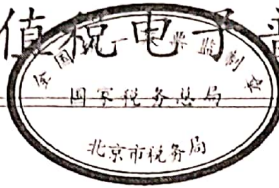 值税电子普
全国统一发票监制章
国家税务总局
北京市税务局